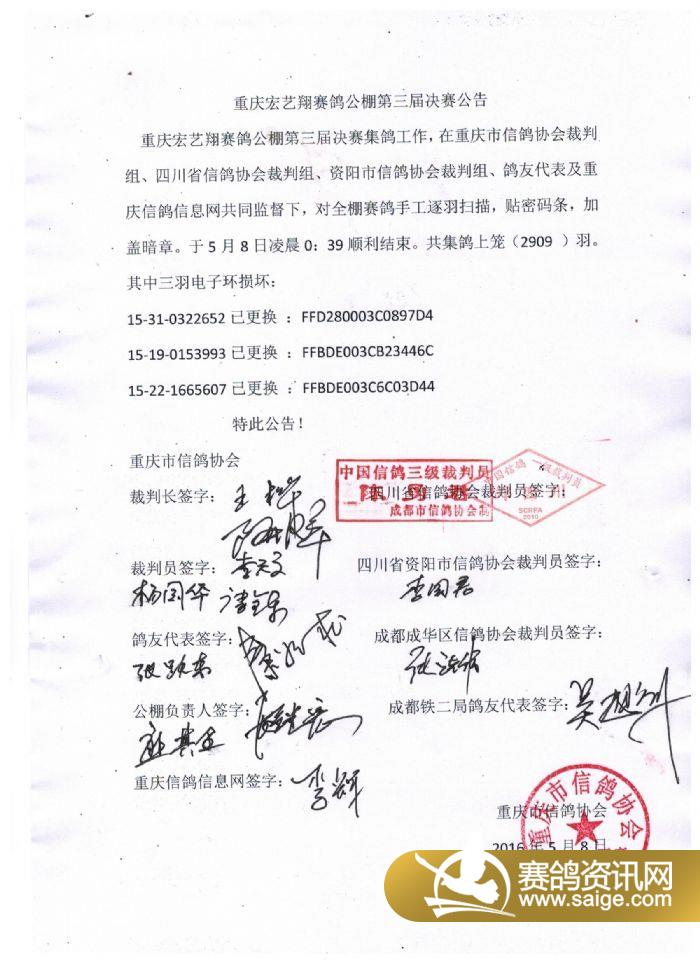 重庆宏艺翔赛鸽公棚第三届决赛公告
重庆宏艺翔赛鸽公棚第三届决赛集鸽工作，在重庆市信鸽协会裁判
组、四川省信鸽协会裁判组、资阳市信鸽协会裁判组、鸽友代表及重
庆信鸽信息网共同监督下，对全棚赛鸽手工逐羽扫描，贴密码条，加
盖暗章。于 5 月 8 日凌晨 0：39 顺利结束。共集鸽上笼（2909 ）羽。
其中三羽电子环损坏：
15-31-0322652 已更换 ：FFD280003C0897D4
15-19-0153993 已更换 ：FFBDE003CB23446C
15-22-1665607 已更换 ：FFBDE003C6C03D44
特此公告！
重庆市信鸽协会
中国信鸽三级裁判员
成都市信鸽协会制
SCRPA
2010
裁判长签字：
四川省信鸽协会裁判员签字：
裁判员签字：
四川省资阳市信鸽协会裁判员签字：
杨国华
李国君
鸽友代表签字：
成都成华区信鸽协会裁判员签字：
公棚负责人签字：
成都铁二局鸽友代表签字：
重庆信鸽信息网签字：
李辉
重庆市信鸽协会
重庆市信鸽协会
2016 年 5 月 8 日
赛鸽资讯网
www.saige.com